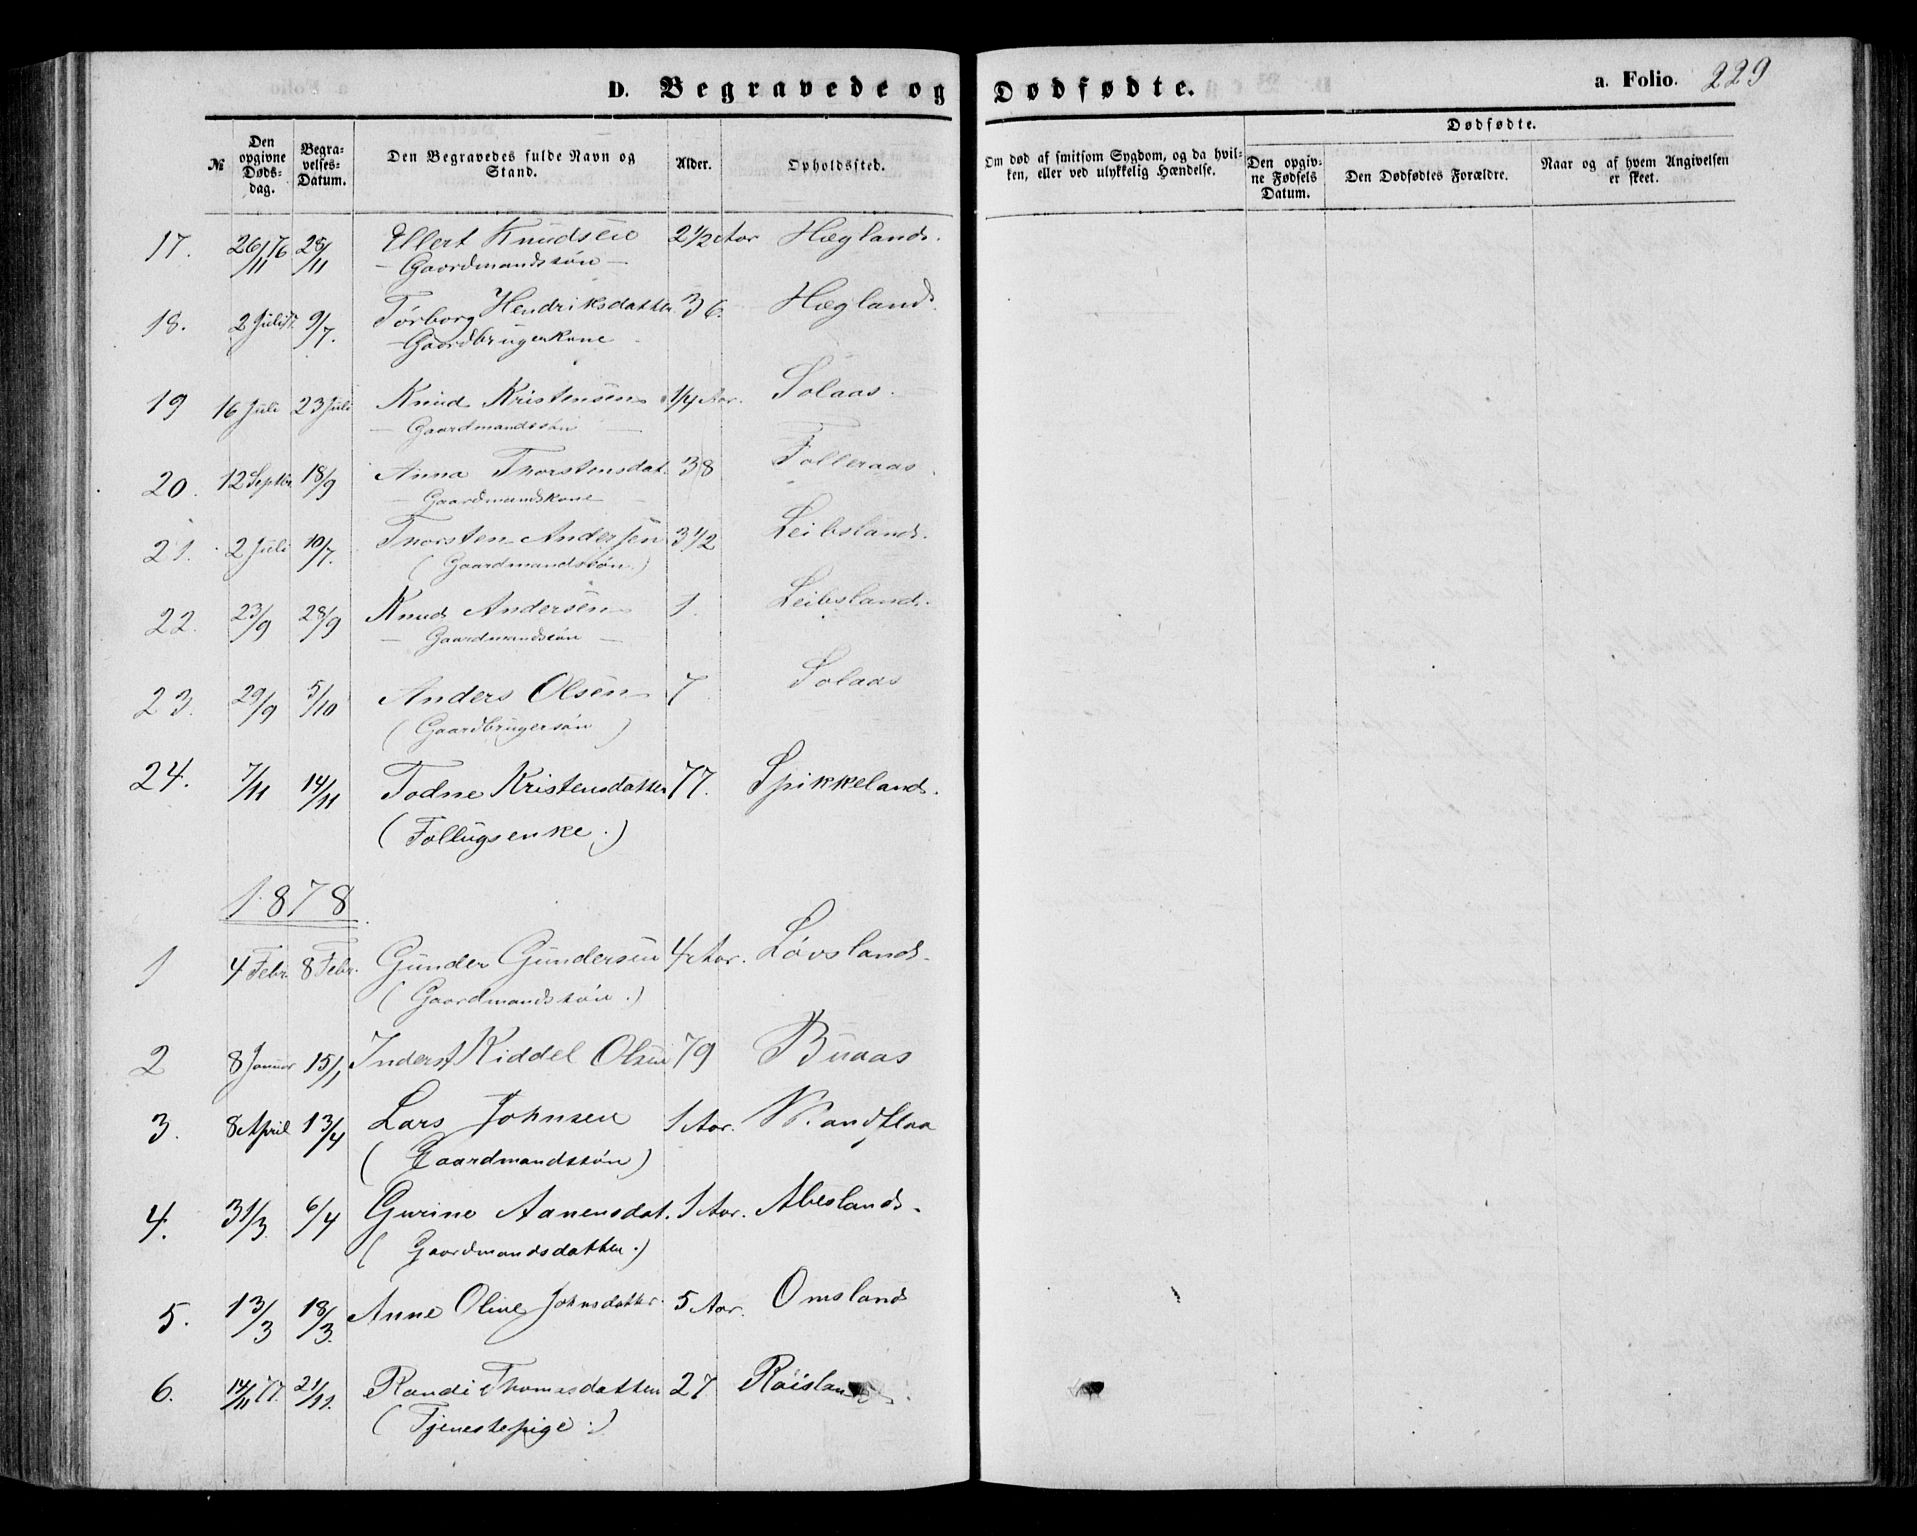 D. Begravede og Dødfødte.
a. Folio. 229
№ Den opgivne Døds-dag. Begra-velses-Datum. Den Begravedes fulde Navn og Stand. Alder. Opholdssted. Om død af smitsom Sygdom, og da hvil-ken, eller ved ulykkelig Hændelse. Dødfødte. Den opgiv-ne Fødsels Datum. Den Dødfødtes Forældre. Naar og af hvem Angivelsen er skeet.
17. 26/11 76 28/11 Ellert Knudsen 2 1/2 Aar Hægland.
- Gaardmandssøn -
18. 2 Juli 9/7. Tørborg Hendriksdatter 36. Hægland.
- Gaardbrugerkone
19 16 Juli 23 Juli Knud Kristensen 1/4 Aar. Solaas.
- Gaardmandssøn -
20. 12 Septbr. 18/9 Anna Thorstensdat. 38 Folleraas.
- Gaardmandskone -
21. 2 Juli 10/7. Thorsten Andersen 3 1/2 Leibsland.
(Gaardmandssøn.)
22. 23/9 28/9 Knud Andersen 1. Leibsland.
- Gaardmandssøn -
23. 29/9 5/10 Anders Olsen 7 Solaas
(Gaardbrugersøn)
24. 7/11 14/11 Todne Kristensdatter 77. Spikkeland.
(Follugsenke.)
1878.
1 4 Febr. 8 Febr. Gunder Gundersen 4 Aar. Løvsland.
(Gaardmandssøn.)
2 8 Januar 15/1 Inderst Kiddel Olsen 79 Buaas
3. 8 April 13/4 Lars Johnsen 1 Aar. Wandflaa
(Gaardmandssøn)
4. 31/3. 6/4 Gurine Aanensdat. 1 Aar. Abesland.
(Gaardmandsdatter.)
5. 13/3 18/3. Anne Oline Johnsdatter. 5 Aar. Omsland
6. 14/11 77. 21/11. Randi Thomasdatter 27 Røisland.
(Tjenestepige.)